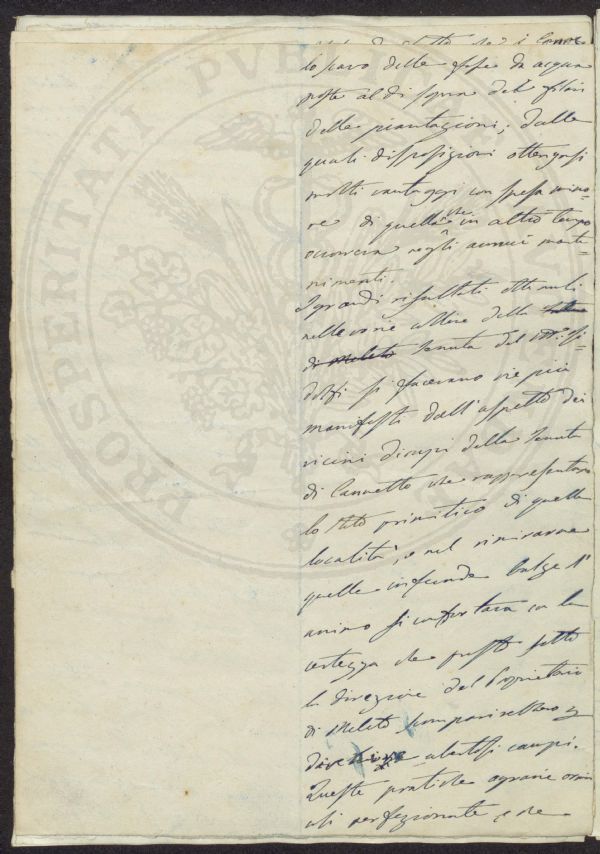 lo scavo delle fosse da acqua
poste al di sopra dei filari
delle piantagioni; dalle
quali disposizioni ottengonsi
molti vantaggi con spesa mino=
re di quella che in altro tempo
occorreva negli annui mante=
nimenti.
I grandi risultati ottenuti
nelle varie colline della
di Meleto tenuta del
si facevano vie più
manifesti dall'aspetto dei
vicini dirupi della tenuta
di Canneto che rappresentano
lo stato primitivo di quella
località, e nel rimirarne
quelle infeconde balze l'
animo si confortava con la
certezza che presto sotto
la direzione del Proprietario
di Meleto scomparirebbero
ubertosi campi.
Queste pratiche agrarie ormai
così perfezionate, e che
PROSPERITATI PUBLICAE